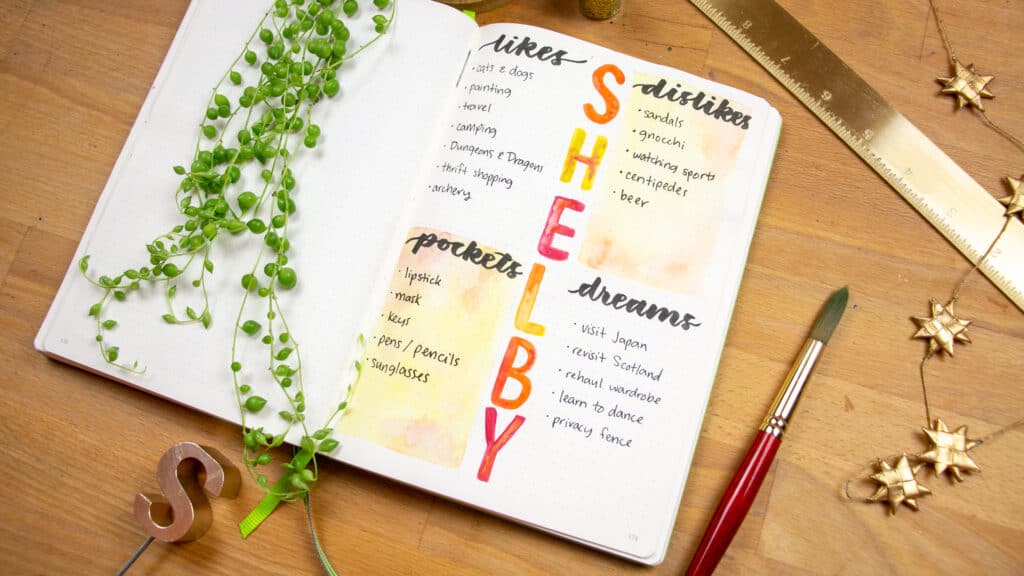 likes
• cats & dogs
• painting
• travel
• camping
• Dungeons & Dragons
• thrift shopping
• archery
SHELBY
dislikes
• sandals
• gnocchi
• watching sports
• centipedes
• beer
pockets
• lipstick
• mask
• keys
• pens / pencils
• sunglasses
dreams
• visit Japan
• revisit Scotland
• rehaul wardrobe
• learn to dance
• privacy fence
S